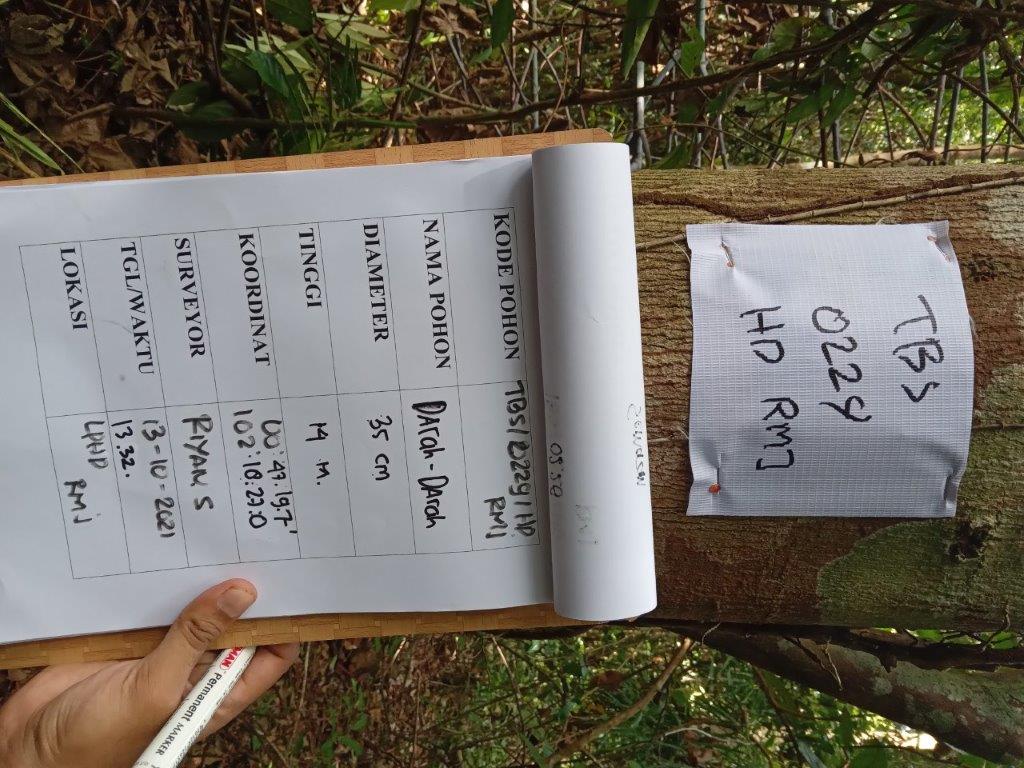 TBS
0229
HD RMJ
KODE POHON TBS/0229/HD
RMJ
NAMA POHON DArah-DArah
DIAMETER 35 cm
TINGGI 14 M.
KOORDINAT 00°:47.19.7'
102°:18:27.0
SURVEYOR RIYAN S
TGL/WAKTU 13-10-2021
13.32.
LOKASI LPHD
RMJ
Permanent MARKER